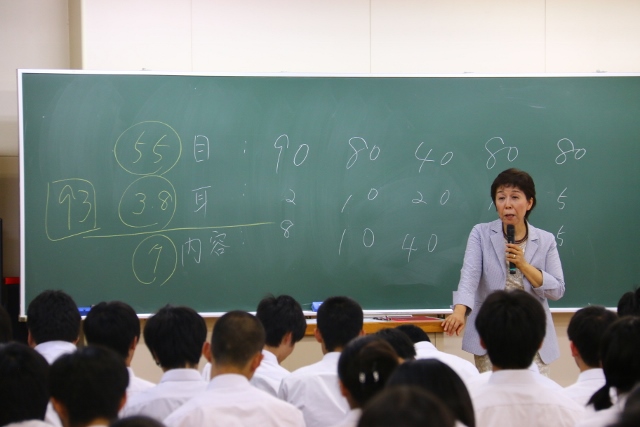 55 目 : 90 80 40 80 80
93 38 耳 : 2 10 20 5
7 内容 8 10 40 5